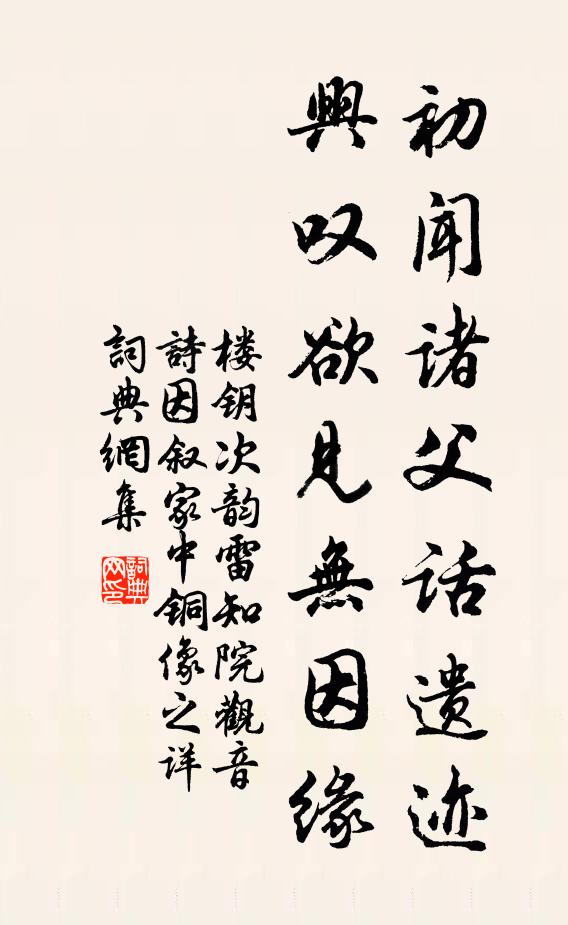 初闻诸父话遗迹
興叹欲見無因缘
楼钥次韵雷知院觀音
詩因叙家中铜像之详
詞典網集
詞典
网印